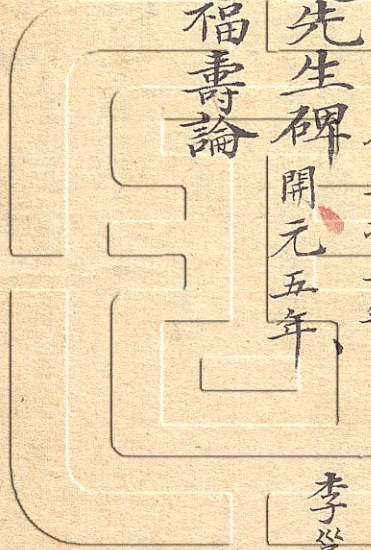 先生碑開元五年、李邕
福壽論